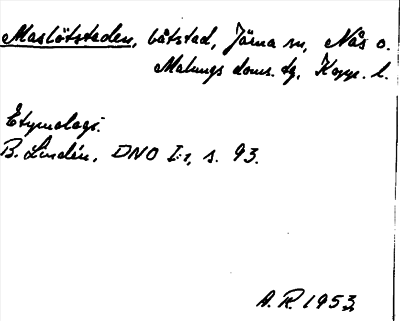 Maslötsteden, båtstad, Järna sn, Nås o.
Malungs doms. tg, Kopp. l.
Etymologi.
B. Lindén, DNO I:1, s. 93.
A. R. 1953